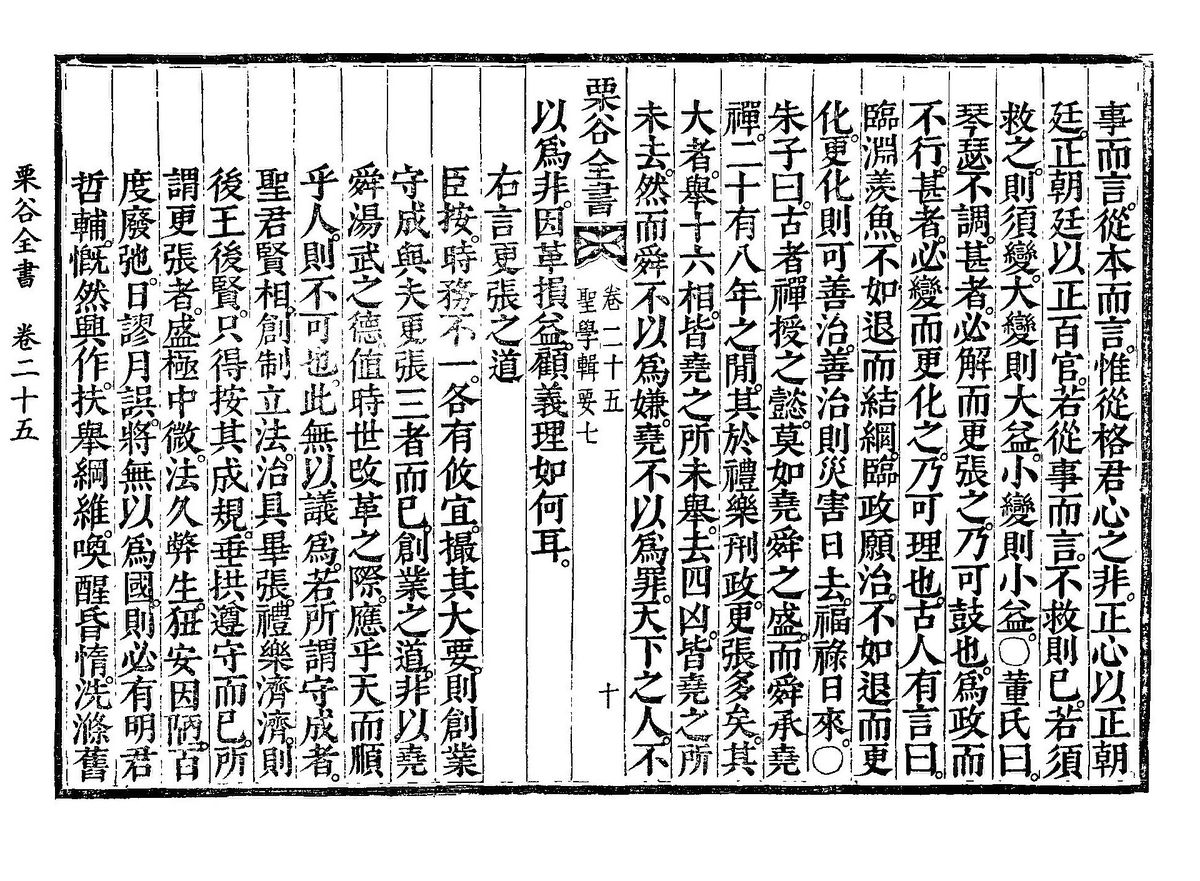 事而言。從本而言。惟從格君心之非。正心以正朝
廷。正朝廷以正百官。若從事而言。不救則已。若須
救之。則須變。大變則大益。小變則小益。○董氏曰。
琴瑟不調。甚者。必解而更張之。乃可鼓也。爲政而
不行。甚者。必變而更化之。乃可理也。古人有言曰。
臨淵羨魚。不如退而結網。臨政願治。不如退而更
化。更化則可善治。善治則災害日去。福祿日來。○
朱子曰。古者禪授之懿。莫如堯舜之盛。而舜承堯
禪。二十有八年之間。其於禮樂刑政。更張多矣。其
大者。擧十六相。皆堯之所未擧。去四凶。皆堯之所
未去。然而舜不以爲嫌。堯不以爲罪。天下之人。不
栗谷全書 卷二十五 聖學輯要七 十
以爲非。因革損益。顧義理如何耳。
右言更張之道
臣按。時務不一。各有攸宜。撮其大要。則創業
守成與夫更張三者而已。創業之道。非以堯
舜湯武之德値時世改革之際。應乎天而順
乎人。則不可也。此無以議爲。若所謂守成者。
聖君賢相。創制立法。治具畢張。禮樂濟濟。則
後王後賢。只得按其成規。垂拱遵守而已。所
謂更張者。盛極中微。法久弊生。狃安因陋。百
度廢弛。日謬月誤。將無以爲國。則必有明君
哲輔。慨然興作。扶擧綱維。喚醒昏惰。洗滌舊
栗谷全書 卷二十五